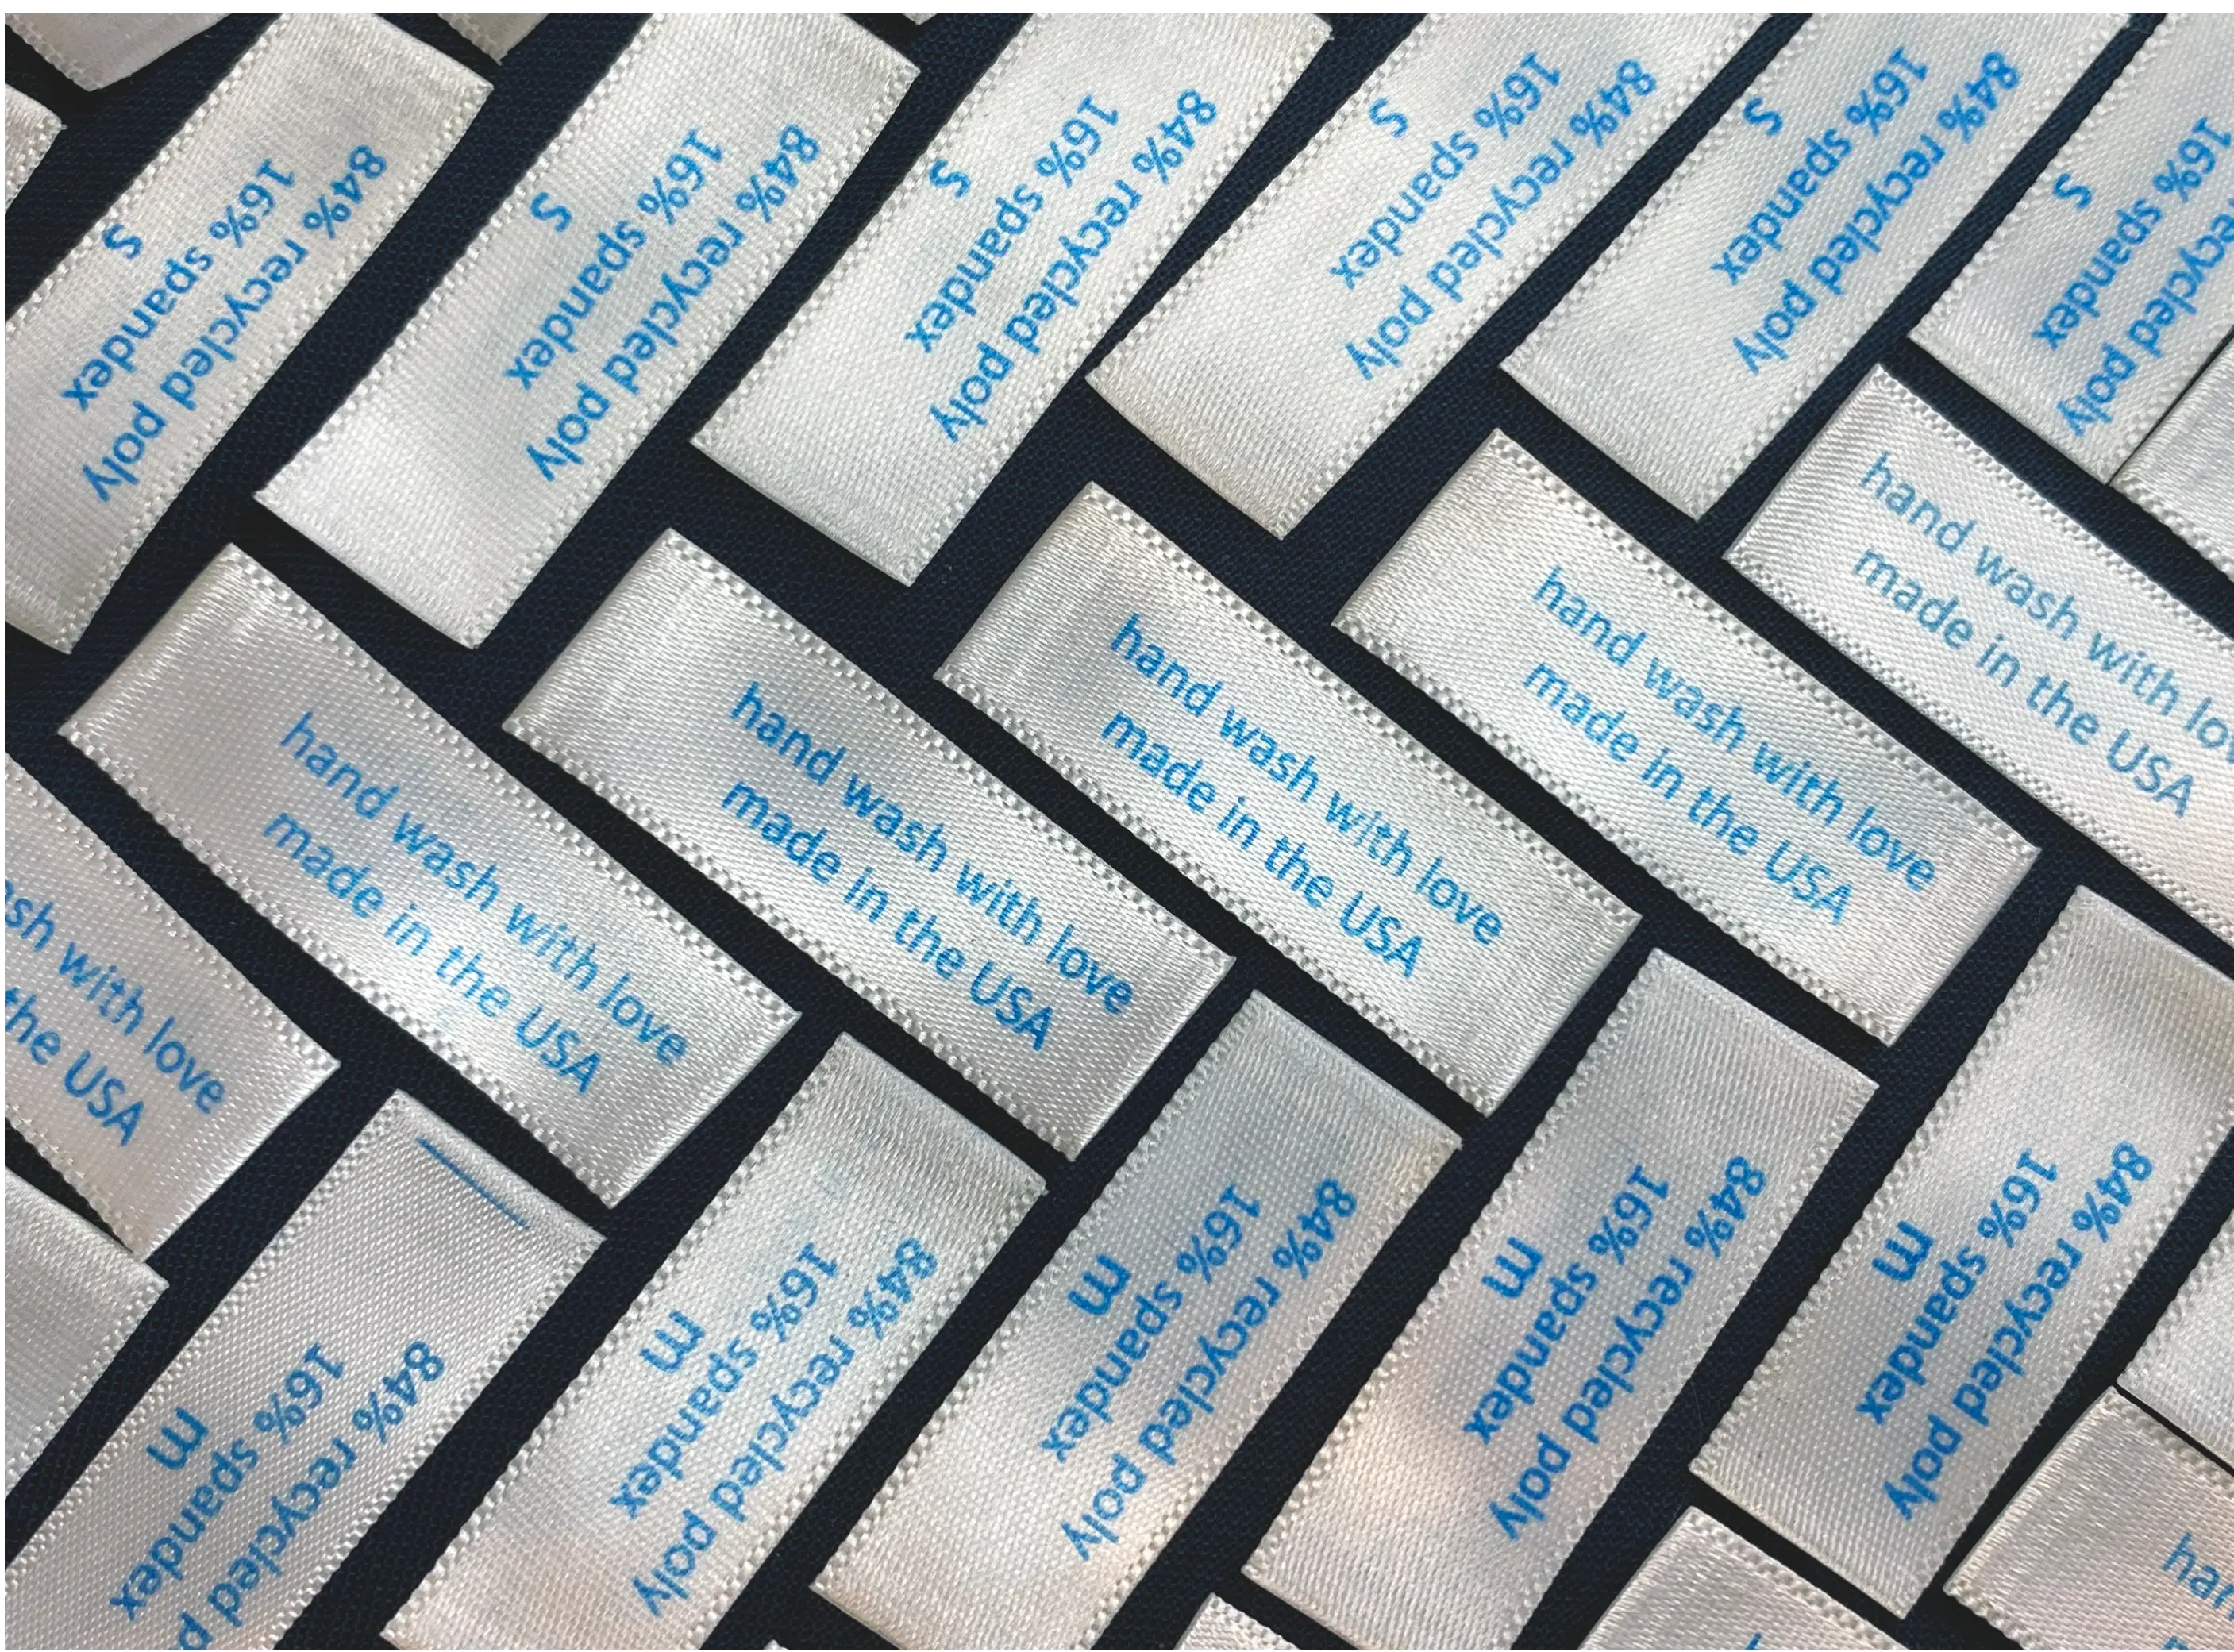 84% recycled poly
16% spandex
S
84% recycled poly
16% spandex
S
84% recycled poly
16% spandex
S
84% recycled poly
16% spandex
S
84% recycled poly
16% spandex
S
recycled poly
16% spandex
S
with love
the USA
hand wash with love
made in the USA
hand wash with love
made in the USA
hand wash with love
made in the USA
hand wash with love
made in the USA
hand wash with
made in the USA
84% recycled
16% spandex
m
84% recycled poly
16% spandex
m
84% recycled poly
16% spandex
m
84% recycled poly
16% spandex
m
84% recycled poly
16% spandex
m